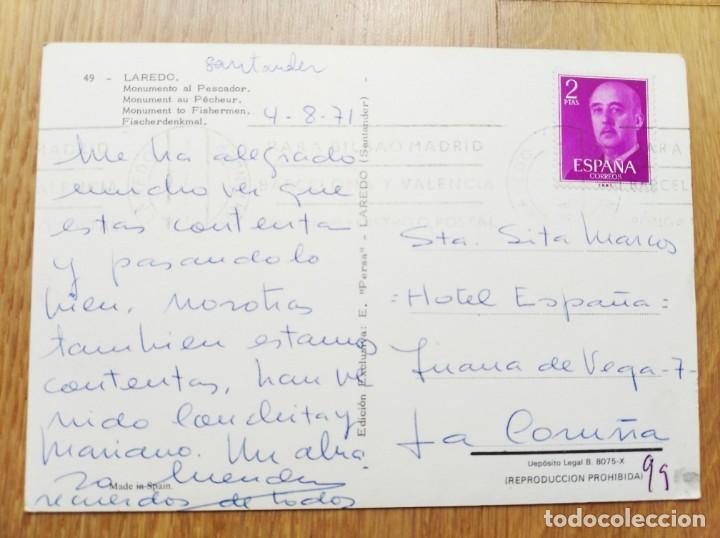 santander
49 - LAREDO.
Monumento al Pescador.
Monument au Pêcheur.
Monument to Fishermen.
Fischerdenkmal.
4-8-71
Me ha alegrado
mucho ver que
estas contenta
y pasandolo
bien, nosotras
tambien estamos
contentas, han ve
nido Conchita y
Mariano. Un abra
zo
recuerdos de todos
Made in Spain.
Edición Exclusiva: E. "Persa" - LAREDO (Santander) -
2
PTAS
ESPAÑA
CORREOS
PARA BILBAO MADRID
BARCELONA Y VALENCIA
POSTAL
PARA
BARCEL
Sta. Sita Marcos
=Hotel España=
Juana de Vega-7-
La Coruña
Depósito Legal B. 8075-X
(REPRODUCCION PROHIBIDA)
99
todocoleccion
todocoleccion.net